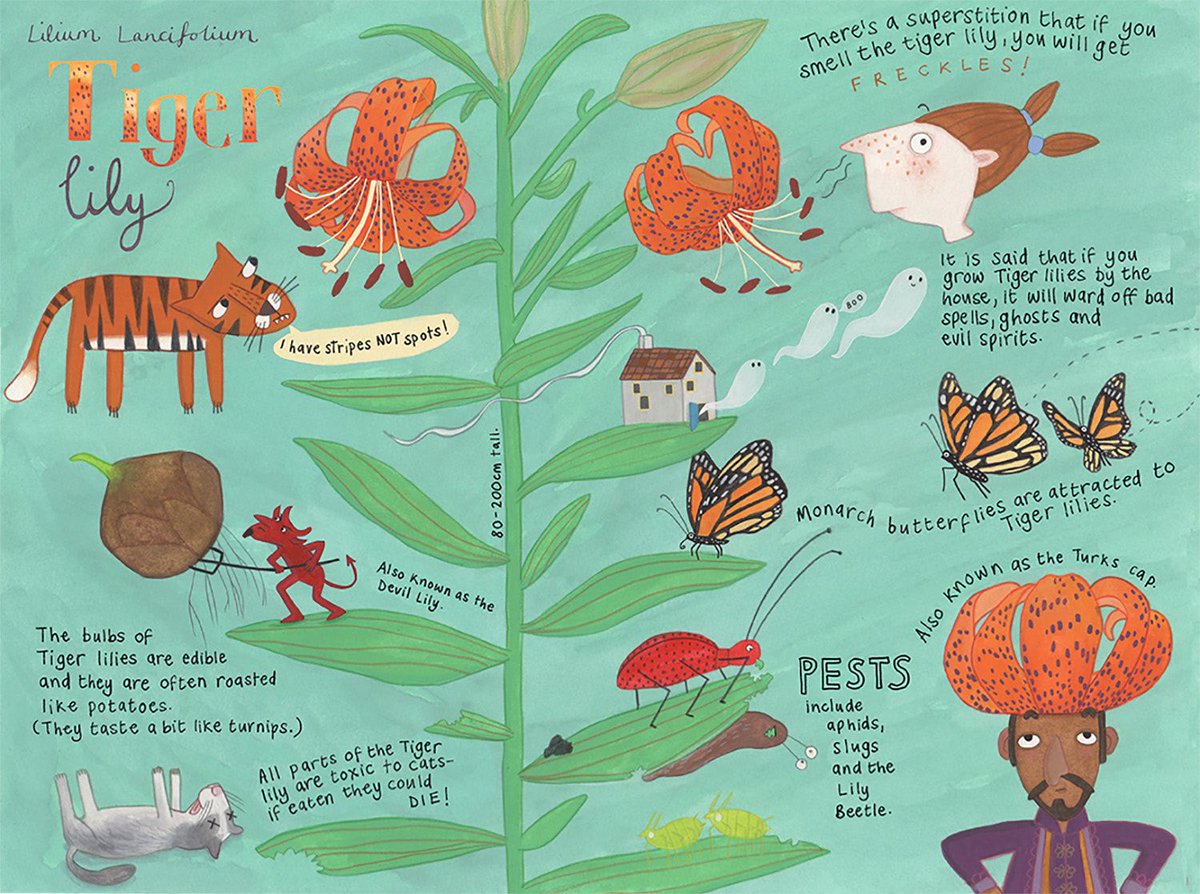 Lilium Lancifolium
Tiger
lily
There's a superstition that if you
smell the tiger lily, you will get
FRECKLES!
I have stripes NOT spots!
BOO
It is said that if you
grow Tiger lilies by the
house, it will ward off bad
spells, ghosts and
evil spirits.
80-200cm tall.
Monarch butterflies are attracted to
Tiger lilies.
Also known as the
Devil Lily.
Also known as the Turks cap.
The bulbs of
Tiger lilies are edible
and they are often roasted
like potatoes.
(They taste a bit like turnips.)
PESTS
include
aphids,
slugs
and the
Lily
Beetle.
All parts of the Tiger
lily are toxic to cats-
if eaten they could
DIE!